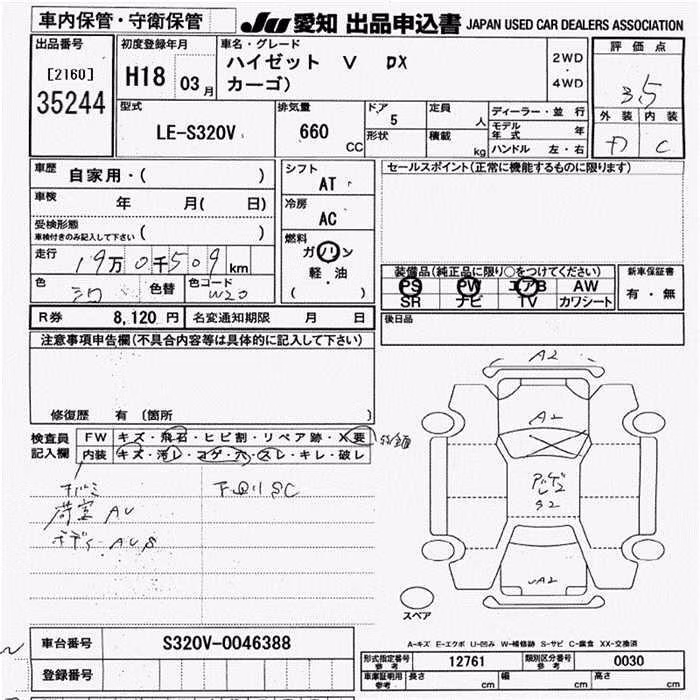 車内保管・守衛保管
JU 愛知 出品申込書 JAPAN USED CAR DEALERS ASSOCIATION
出品番号
[2160]
35244
初度登録年月
H18 03月
車名・グレード
ハイゼット V DX
カーゴ)
2WD
・
4WD
評価点
3.5
外装 内装
C
型式
LE-S320V
排気量
660
CC
ドア
5
形状
定員
人
積載
kg
ディーラー・並行
モデル
年式 年
ハンドル 左・右
車歴
自家用・( )
車検
年 月( 日)
受検形態
車検付きのみ記入して下さい ( )
走行
19万0千509km
色
シロ
色替
色コード
W20
シフト
AT
冷房
AC
燃料
ガソリン
軽・油
( )
セールスポイント(正常に機能するものに限ります)
装備品(純正品に限り○をつけてください)
PS PW エアB AW
SR ナビ TV カワシート
新車保証書
有・無
後日品
R券 8,120円 名変通知期限 月 日
注意事項申告欄(不具合内容等は具体的に記入して下さい)
修復歴 有 〔箇所 〕
検査員
記入欄
FW キズ・飛石・ヒビ割・リペア跡・X要
内装 キズ・汚レ・コゲ・穴・スレ・キレ・破レ
荷室 AU
ボディーAUS
下回りSC
A2
A2
S2
A2
スペア
A-キズ E-エクボ U-凹み W-補修跡 S-サビ C-腐食 XX-交換済
車台番号 S320V-0046388
登録番号
形式指定番号
参考 12761
類別区分番号
参考 0030
車庫証明用
参考 長さ cm 幅 cm 高さ cm